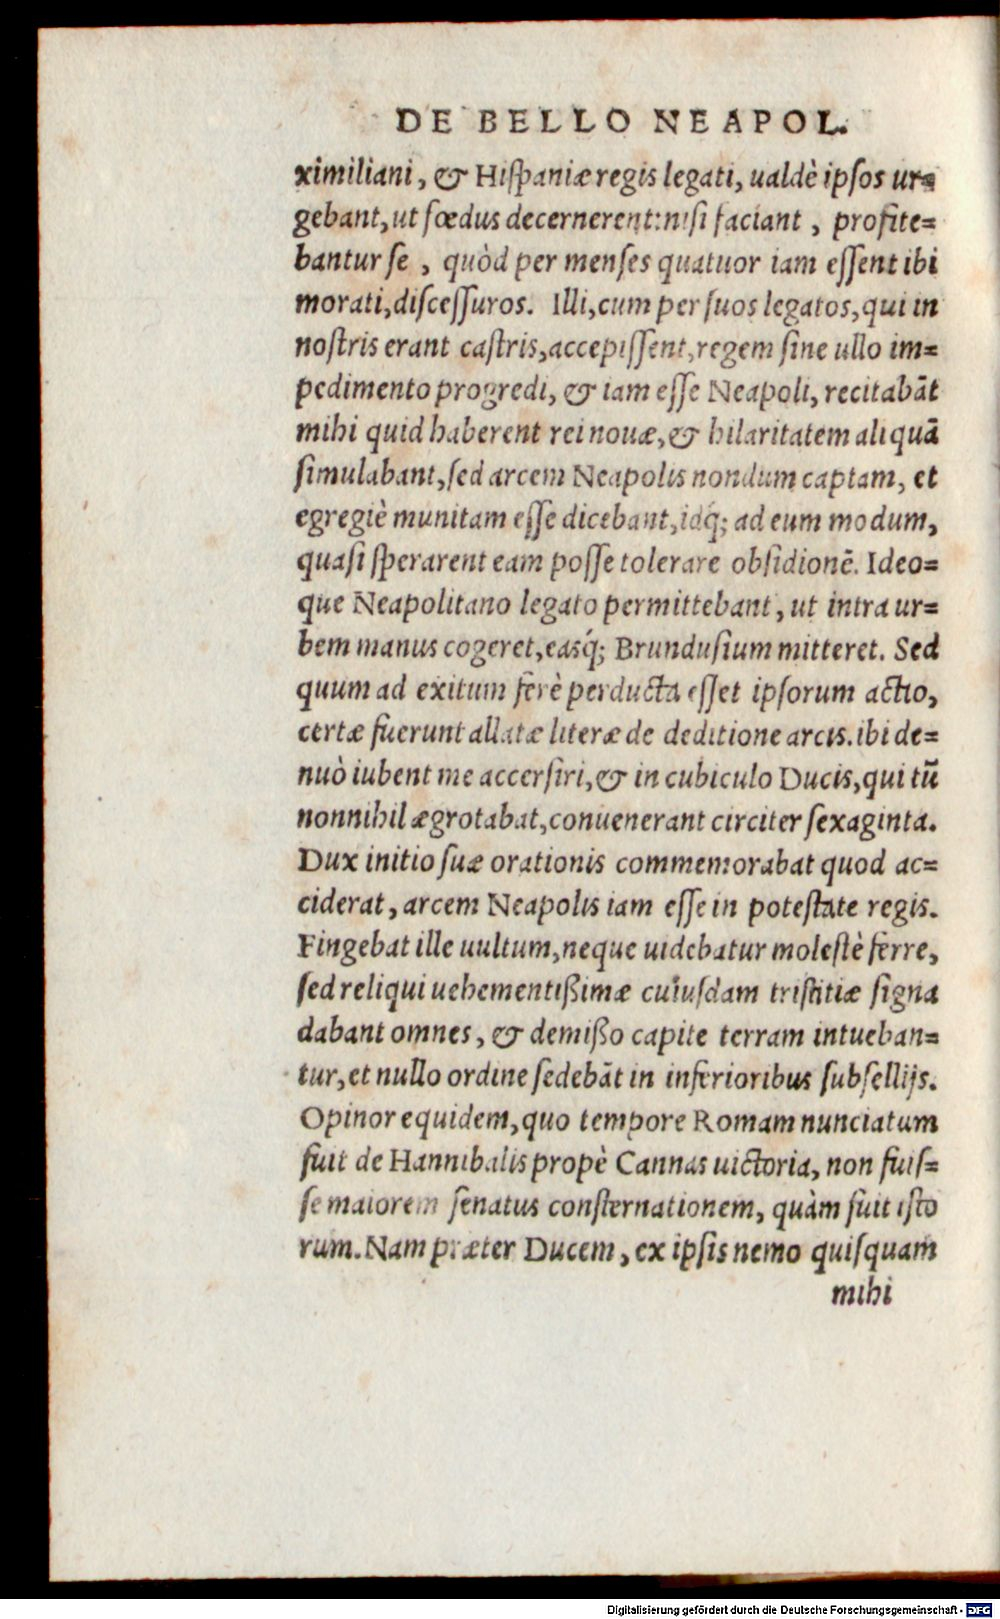 DE BELLO NEAPOL.
ximiliani, & Hiſpaniæ regis legati, ualdè ipſos ur=
gebant, ut fœdus decernerent: niſi faciant, profite=
bantur ſe, quòd per menſes quatuor iam eſſent ibi
morati, diſceſſuros. Illi, cum per ſuos legatos, qui in
noſtris erant caſtris, accepiſſent, regem ſine ullo im=
pedimento progredi, & iam eſſe Neapoli, recitabāt
mihi quid haberent rei nouæ, & hilaritatem aliquā
ſimulabant, ſed arcem Neapolis nondum captam, et
egregiè munitam eſſe dicebant, idq́; ad eum modum,
quaſi ſperarent eam poſſe tolerare obſidionē. Ideo=
que Neapolitano legato permittebant, ut intra ur=
bem manus cogeret, easq́; Brunduſium mitteret. Sed
quum ad exitum ferè perducta eſſet ipſorum actio,
certæ fuerunt allatæ literæ de deditione arcis. ibi de=
nuò iubent me accerſiri, & in cubiculo Ducis, qui tū
nonnihil ægrotabat, conuenerant circiter ſexaginta.
Dux initio ſuæ orationis commemorabat quod ac=
ciderat, arcem Neapolis iam eſſe in poteſtate regis.
Fingebat ille uultum, neque uidebatur moleſtè ferre,
ſed reliqui uehementißimæ cuiuſdam triſtitiæ ſigna
dabant omnes, & demißo capite terram intueban=
tur, et nullo ordine ſedebāt in inferioribus ſubſellijs.
Opinor equidem, quo tempore Romam nunciatum
fuit de Hannibalis propè Cannas uictoria, non fuiſ=
ſe maiorem ſenatus conſternationem, quàm fuit iſto
rum. Nam præter Ducem, ex ipſis nemo quiſquam
mihi
Digitalisierung gefördert durch die Deutsche Forschungsgemeinschaft - DFG